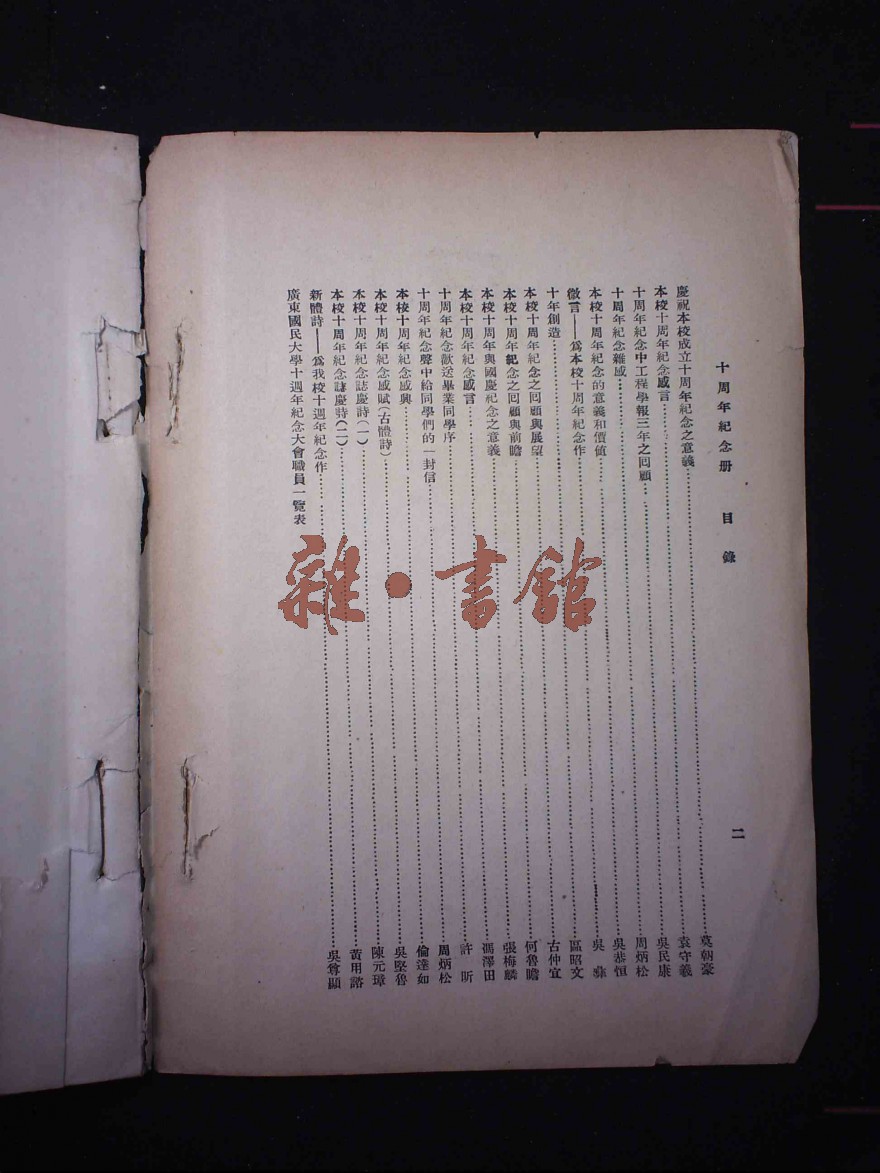 十周年紀念册 目錄 二
慶祝本校成立十周年紀念之意義……莫朝豪
本校十周年紀念感言……袁守義
十周年紀念中工程學報三年之回顧……吳民康
十周年紀念雜感……周炳松
本校十周年紀念的意義和價值……吳恭恒
微言——爲本校十周年紀念作……吳彝
十年創造……區昭文
本校十周年紀念之回顧與展望……古仲宜
本校十周年紀念之回顧與前瞻……何魯瞻
本校十周年與國慶紀念之意義……張梅麟
本校十周年紀念感言……馮澤田
十周年紀念歡送畢業同學序……許昕
十周年紀念聲中給同學們的一封信……周炳松
本校十周年紀念感興……倫達如
本校十周年紀念感賦(古體詩)……吳堅魯
本校十周年紀念誌慶詩(一)……陳元瑋
本校十周年紀念誌慶詩(二)……黃用諮
新體詩——爲我校十週年紀念作……吳尊顯
廣東國民大學十週年紀念大會職員一覽表
雜·書館